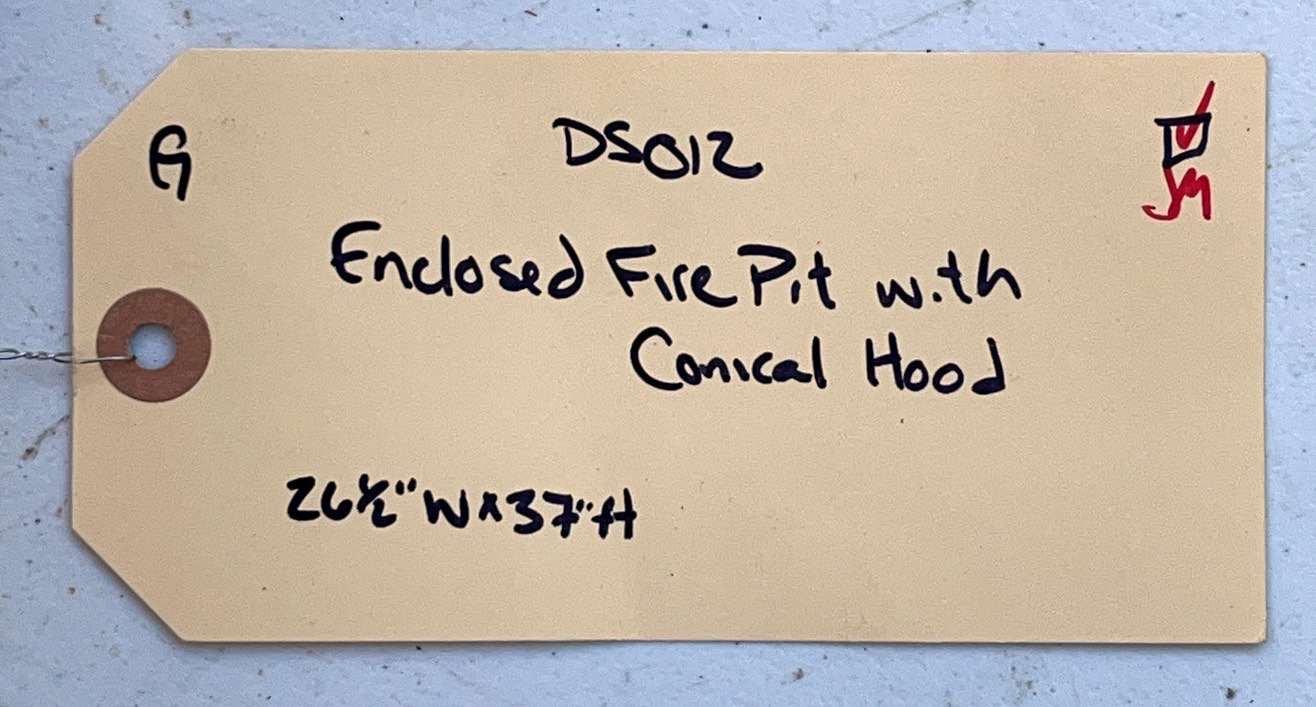 DS012
Enclosed Fire Pit with
Conical Hood
26½" W x 37" H